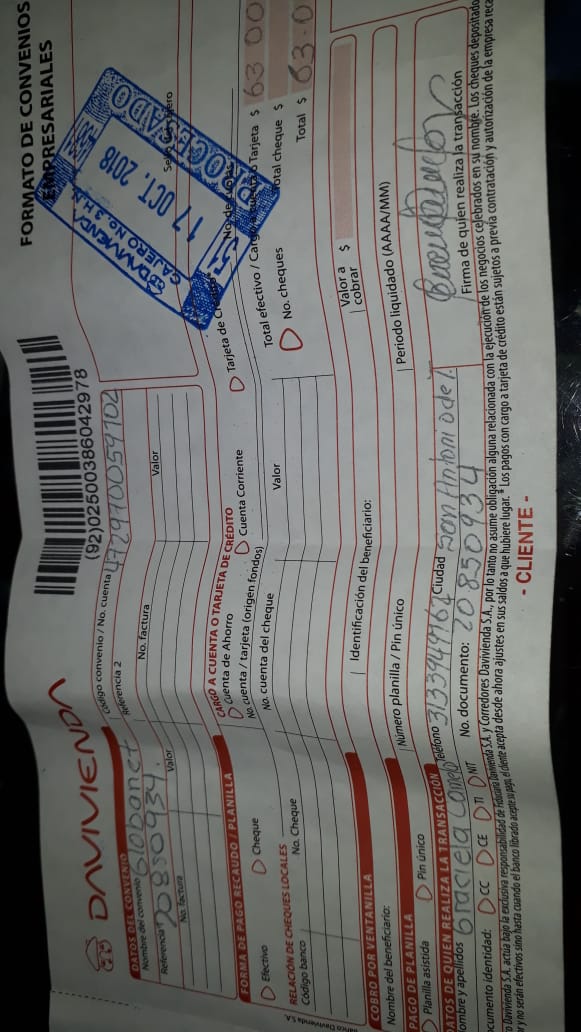 DAVIVIENDA
FORMATO DE CONVENIOS
EMPRESARIALES
(92)02500386042978
DATOS DEL CONVENIO
Nombre del convenio Globanet
Código convenio / No. cuenta
Referencia 1 20850934
Referencia 2
No. factura Valor No. factura Valor
DAVIVIENDA
CAJERO No. 3 H.N.
17 OCT. 2018
PROCESADO
FORMA DE PAGO RECAUDO / PLANILLA
CARGO A CUENTA O TARJETA DE CRÉDITO
Efectivo Cheque
Cuenta de Ahorro Cuenta Corriente Tarjeta de
No. cuenta / tarjeta (origen fondos)
RELACIÓN DE CHEQUES LOCALES
Total efectivo / Tarjeta $ 63 00
Código banco No. Cheque No. cuenta del cheque Valor No. cheques Total cheque $
Total $ 63.0
COBRO POR VENTANILLA
Nombre del beneficiario: Identificación del beneficiario: Valor a cobrar $
PAGO DE PLANILLA
Planilla asistida Pin único Número planilla / Pin único Periodo liquidado (AAAA/MM)
DATOS DE QUIEN REALIZA LA TRANSACCIÓN
ombre y apellidos Graciela Camelo Teléfono 3133949162 Ciudad San Antonio del T.
cumento identidad: CC CE TI NIT No. documento: 20850934 Firma de quien realiza la transacción
Davivienda S.A. actúa bajo la exclusiva responsabilidad de Fiduciaria Davivienda S.A. y Corredores Davivienda S.A., por lo tanto no asume obligación alguna relacionada con la ejecución de los negocios celebrados en su nombre. Los cheques depositado
y no serán efectivos sino hasta cuando el banco librado acepte su pago, el cliente acepta desde ahora ajustes en sus saldos a que hubiere lugar. * Los pagos con cargo a tarjeta de crédito están sujetos a previa contratación y autorización de la empresa reca
- CLIENTE -